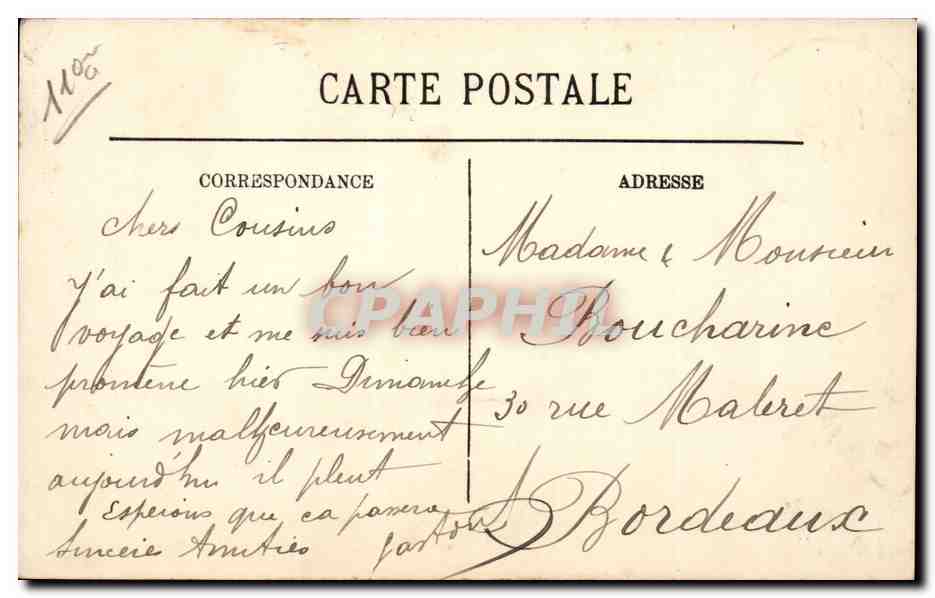 CARTE POSTALE
CORRESPONDANCE
chers Cousins
J'ai fait un bon
voyage et me suis bien
promené hier Dimanche
mais malheureusement
aujourd'hui il pleut
Esperons que ca passera
Sincères Amitiés Gaston
ADRESSE
Madame & Monsieur
Boucharine
30 rue Maleret
Bordeaux
CPAPHIL